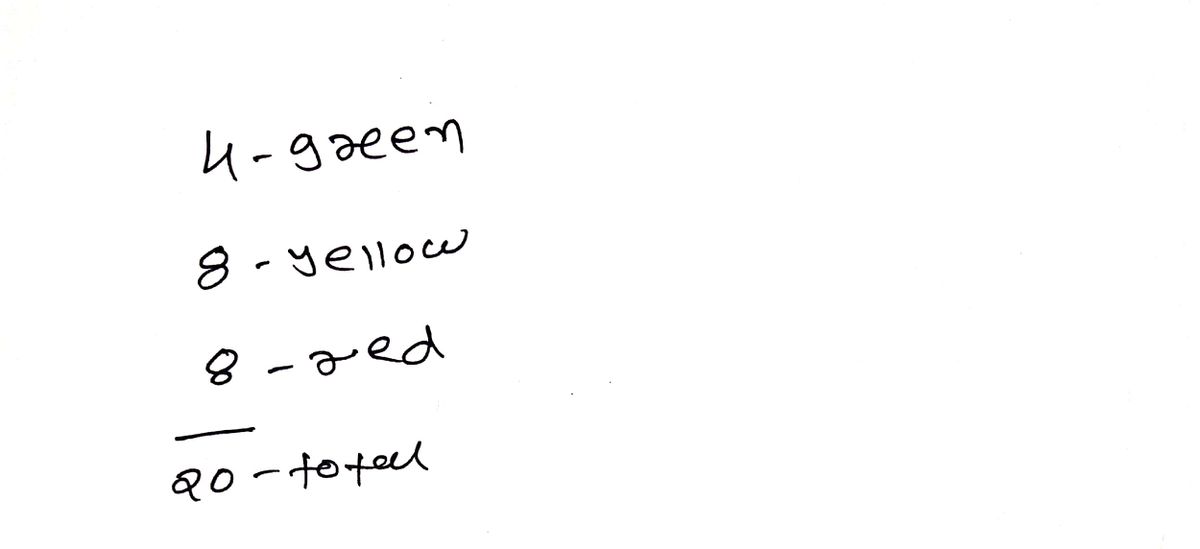 4 - green
8 - yellow
8 - red
20 - total